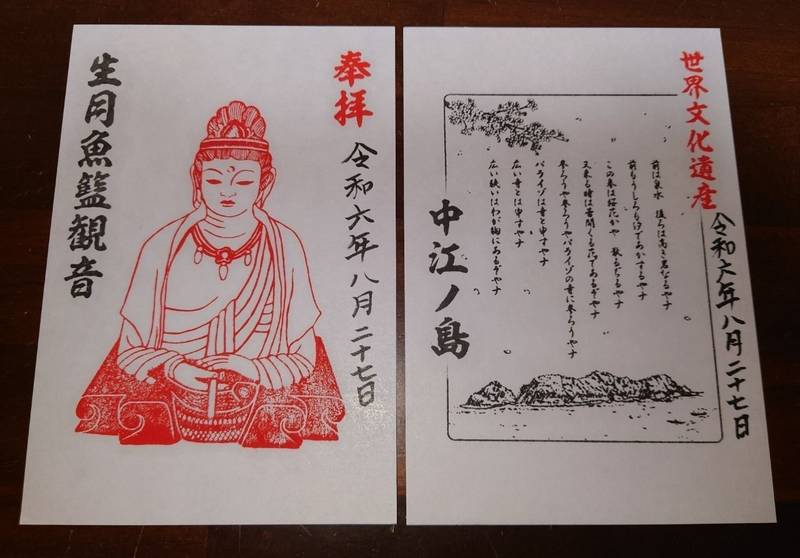 奉拝
令和六年八月二十七日
生月魚籃観音
世界文化遺産
令和六年八月二十七日
前は泉水 後ろは高き岩なるやナ
前もうしろも汐であかするやナ
この春は桜花かや 散るぢるやナ
又来る時は蕾開くる花であるぞやナ
参ろうや参ろうやパライゾの寺に参ろうやナ
パライゾは寺と申すやナ
広い寺とは申すやナ
広い狭いはわが胸にあるぞやナ
中江ノ島